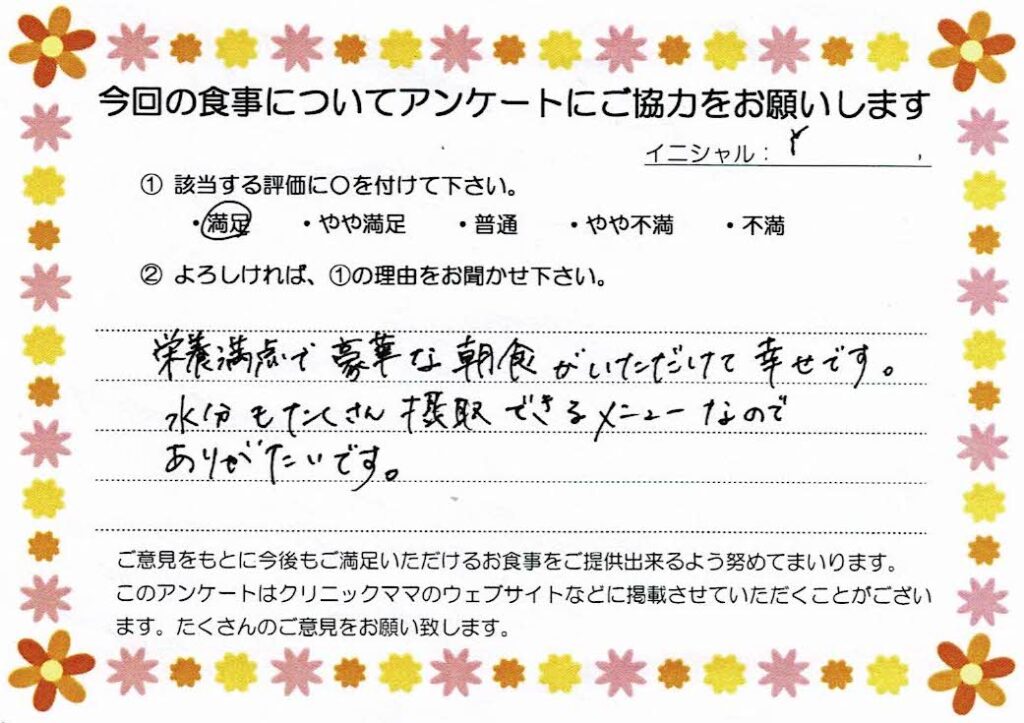 今回の食事についてアンケートにご協力をお願いします
イニシャル： Y
① 該当する評価に〇を付けて下さい。
・満足 ・やや満足 ・普通 ・やや不満 ・不満
② よろしければ、①の理由をお聞かせ下さい。
栄養満点で豪華な朝食がいただけて幸せです。
水分もたくさん摂取できるメニューなので
ありがたいです。
ご意見をもとに今後もご満足いただけるお食事をご提供出来るよう努めてまいります。
このアンケートはクリニックママのウェブサイトなどに掲載させていただくことがござい
ます。たくさんのご意見をお願い致します。